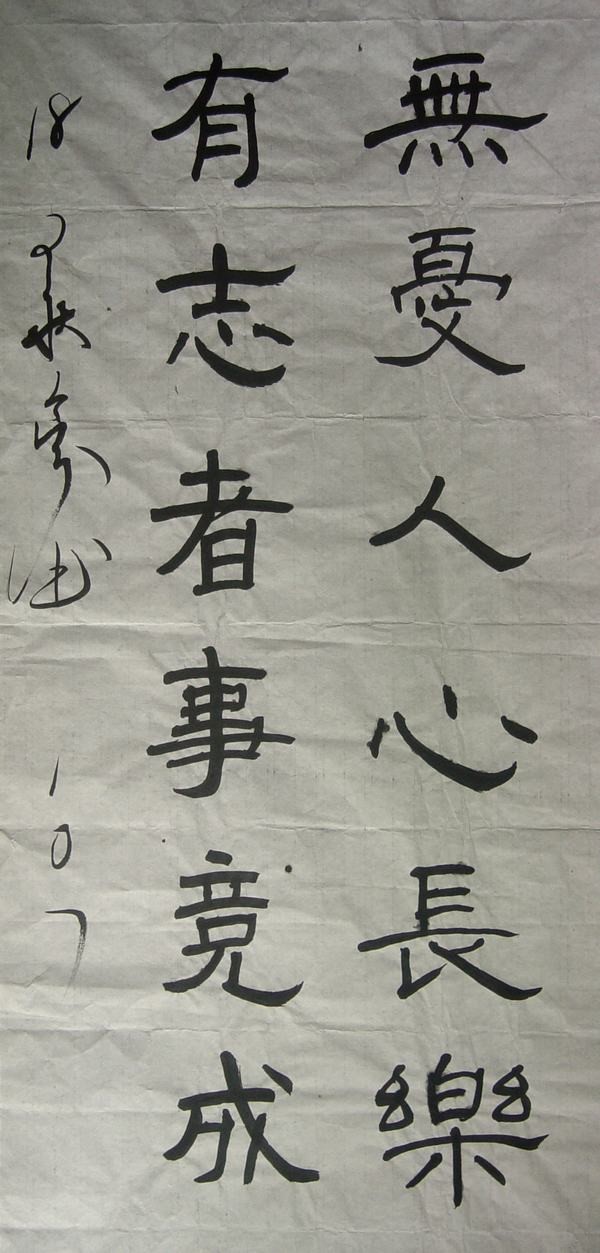 無憂人心長樂
有志者事竟成
18
107